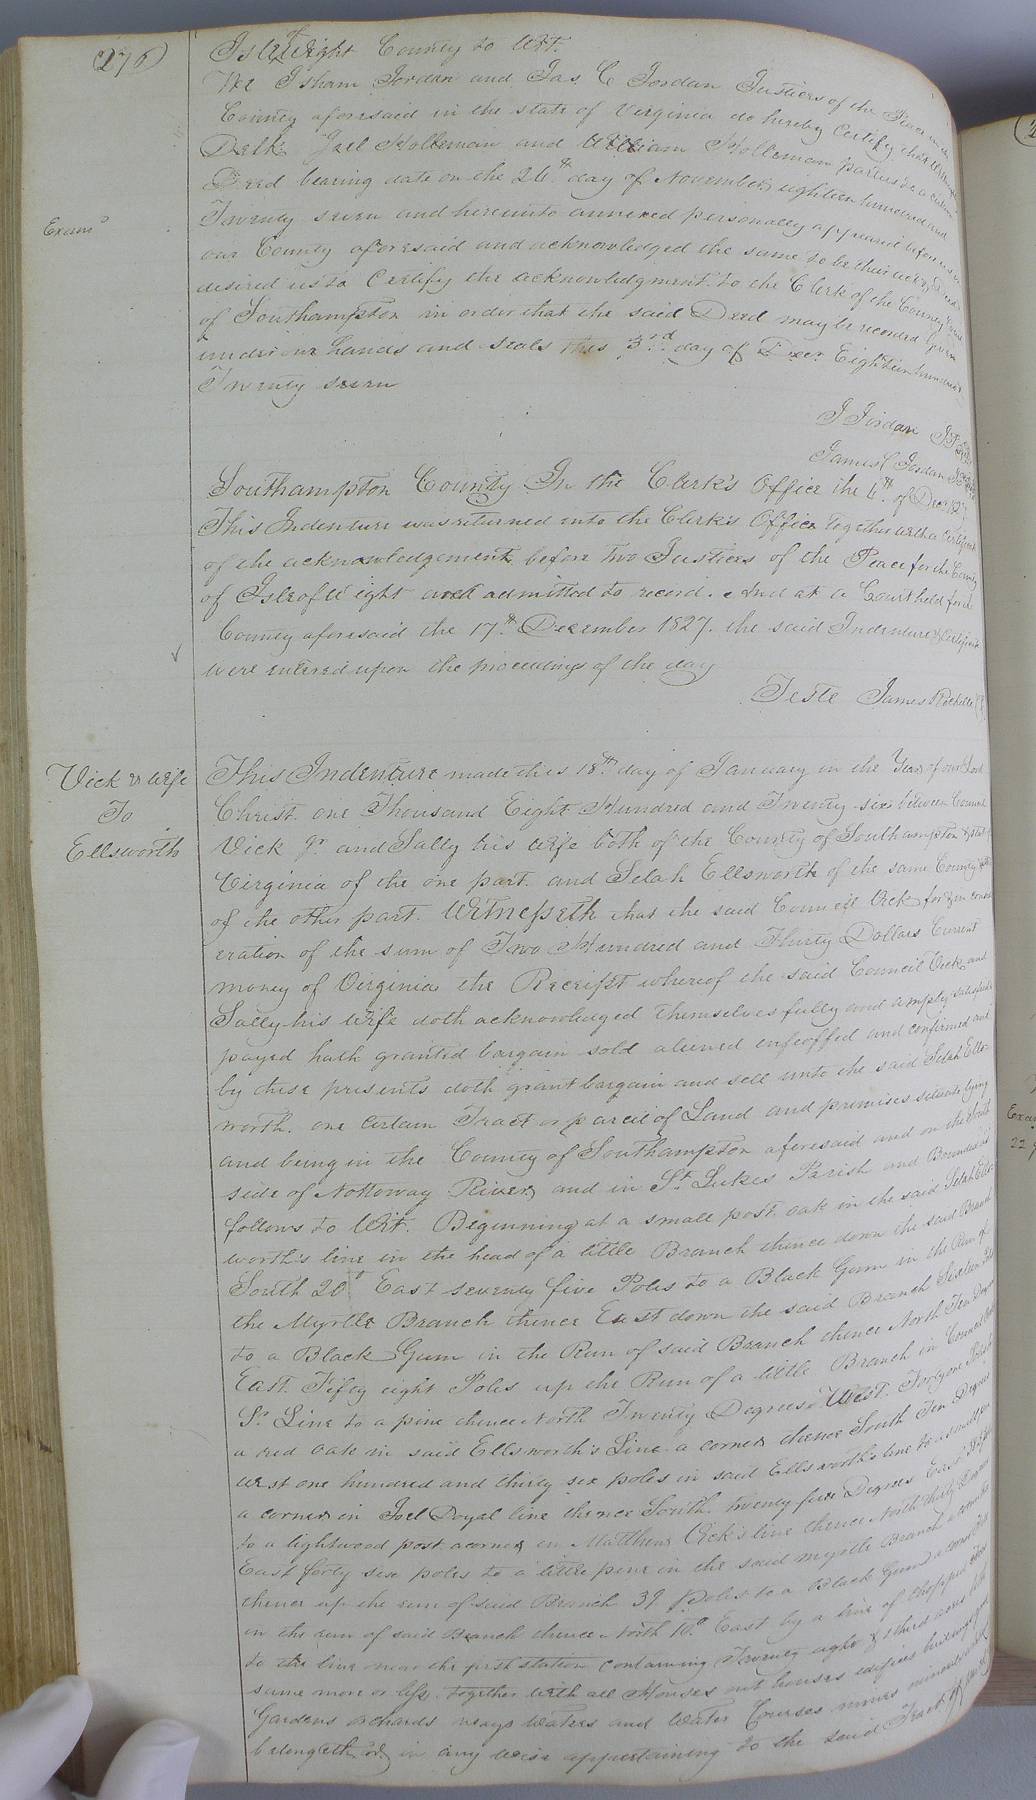 276
Isle of Wight County to Wit.
We Isham Jordan and Jas. C Jordan Justices of the Peace in
County aforesaid in the state of Virginia do hereby Certify that
Delk Joel Holleman and William Holleman parties to a certain
Deed bearing date on the 26th day of November eighteen hundred and
Twenty seven and hereunto annexed personally appeared before us in
Examd
our County aforesaid and acknowledged the same to be their act & Deed
desired us to Certify the acknowledgment to the Clerk of the County Court
of Southampton in order that the said Deed may be recorded given
under our hands and seals this 3rd day of Decr Eighteen hundred
Twenty seven
J Jordan JP
James C Jordan
Southampton County In the Clerk's Office the 4th of Decr 1827
This Indenture was returned into the Clerk's Office together with a Certificate
of the acknowledgement before two Justices of the Peace for the County
of Isle of Wight and admitted to record. And at a Court held for
County aforesaid the 17th December 1827. the said Indenture & Certificate
were entered upon the proceedings of the day
Teste James Rochelle
Vick & wife
To
Ellsworth
This Indenture made this 18th day of January in the Year of our Lord
Christ one Thousand Eight Hundred and Twenty six between Council
Vick Jr and Sally his wife both of the County of Southampton & state
Virginia of the one part and Selah Ellsworth of the same County
of the other part. Witnesseth that the said Council Vick for & in consid
eration of the sum of Two Hundred and Thirty Dollars Current
money of Virginia the Receipt whereof the said Council Vick and
Sally his wife doth acknowledged themselves fully and amply satisfied
payed hath granted bargain sold aliened enfeoffed and confirmed and
by these presents doth grant bargain and sell unto the said Selah Ells-
worth one certain Tract or parcel of Land and premises situate lying
and being in the County of Southampton aforesaid and on the South
side of Nottoway River and in St. Lukes Parish and Bounded as
follows to Wit. Beginning at a small post oak in the said Selah Ells
worth's line in the head of a little Branch thence down the said Branch
South 20° East seventy five Poles to a Black Gum in the Run of
the Myrtle Branch thence East down the said Branch Sixteen
to a Black Gum in the Run of said Branch thence North Ten Degrees
East Fifty eight Poles up the Run of a little Branch in Council
Sr. Line to a pine thence North Twenty Degrees West Forty one
a red oak in said Ellsworth's Line a corner thence South Ten Degrees
west one hundred and thirty six poles in said Ellsworth's line to a small
a corner in Joel Doyal line thence South twenty five Degrees East
to a lightwood post a corner in Matthew Vick's line thence North thirty
East forty six poles to a little pine in the said myrtle Branch a corner
thence up the run of said Branch 39 poles to a Black Gum a corner
in the run of said Branch thence North 10° East by a line of chopped
to the line near the first station containing Twenty eight & acres be the
same more or less. together with all Houses out houses edifices buildings
Gardens orchards ways waters and Water Courses mines minerals
belongeth or in any wise appertaining to the said Tract